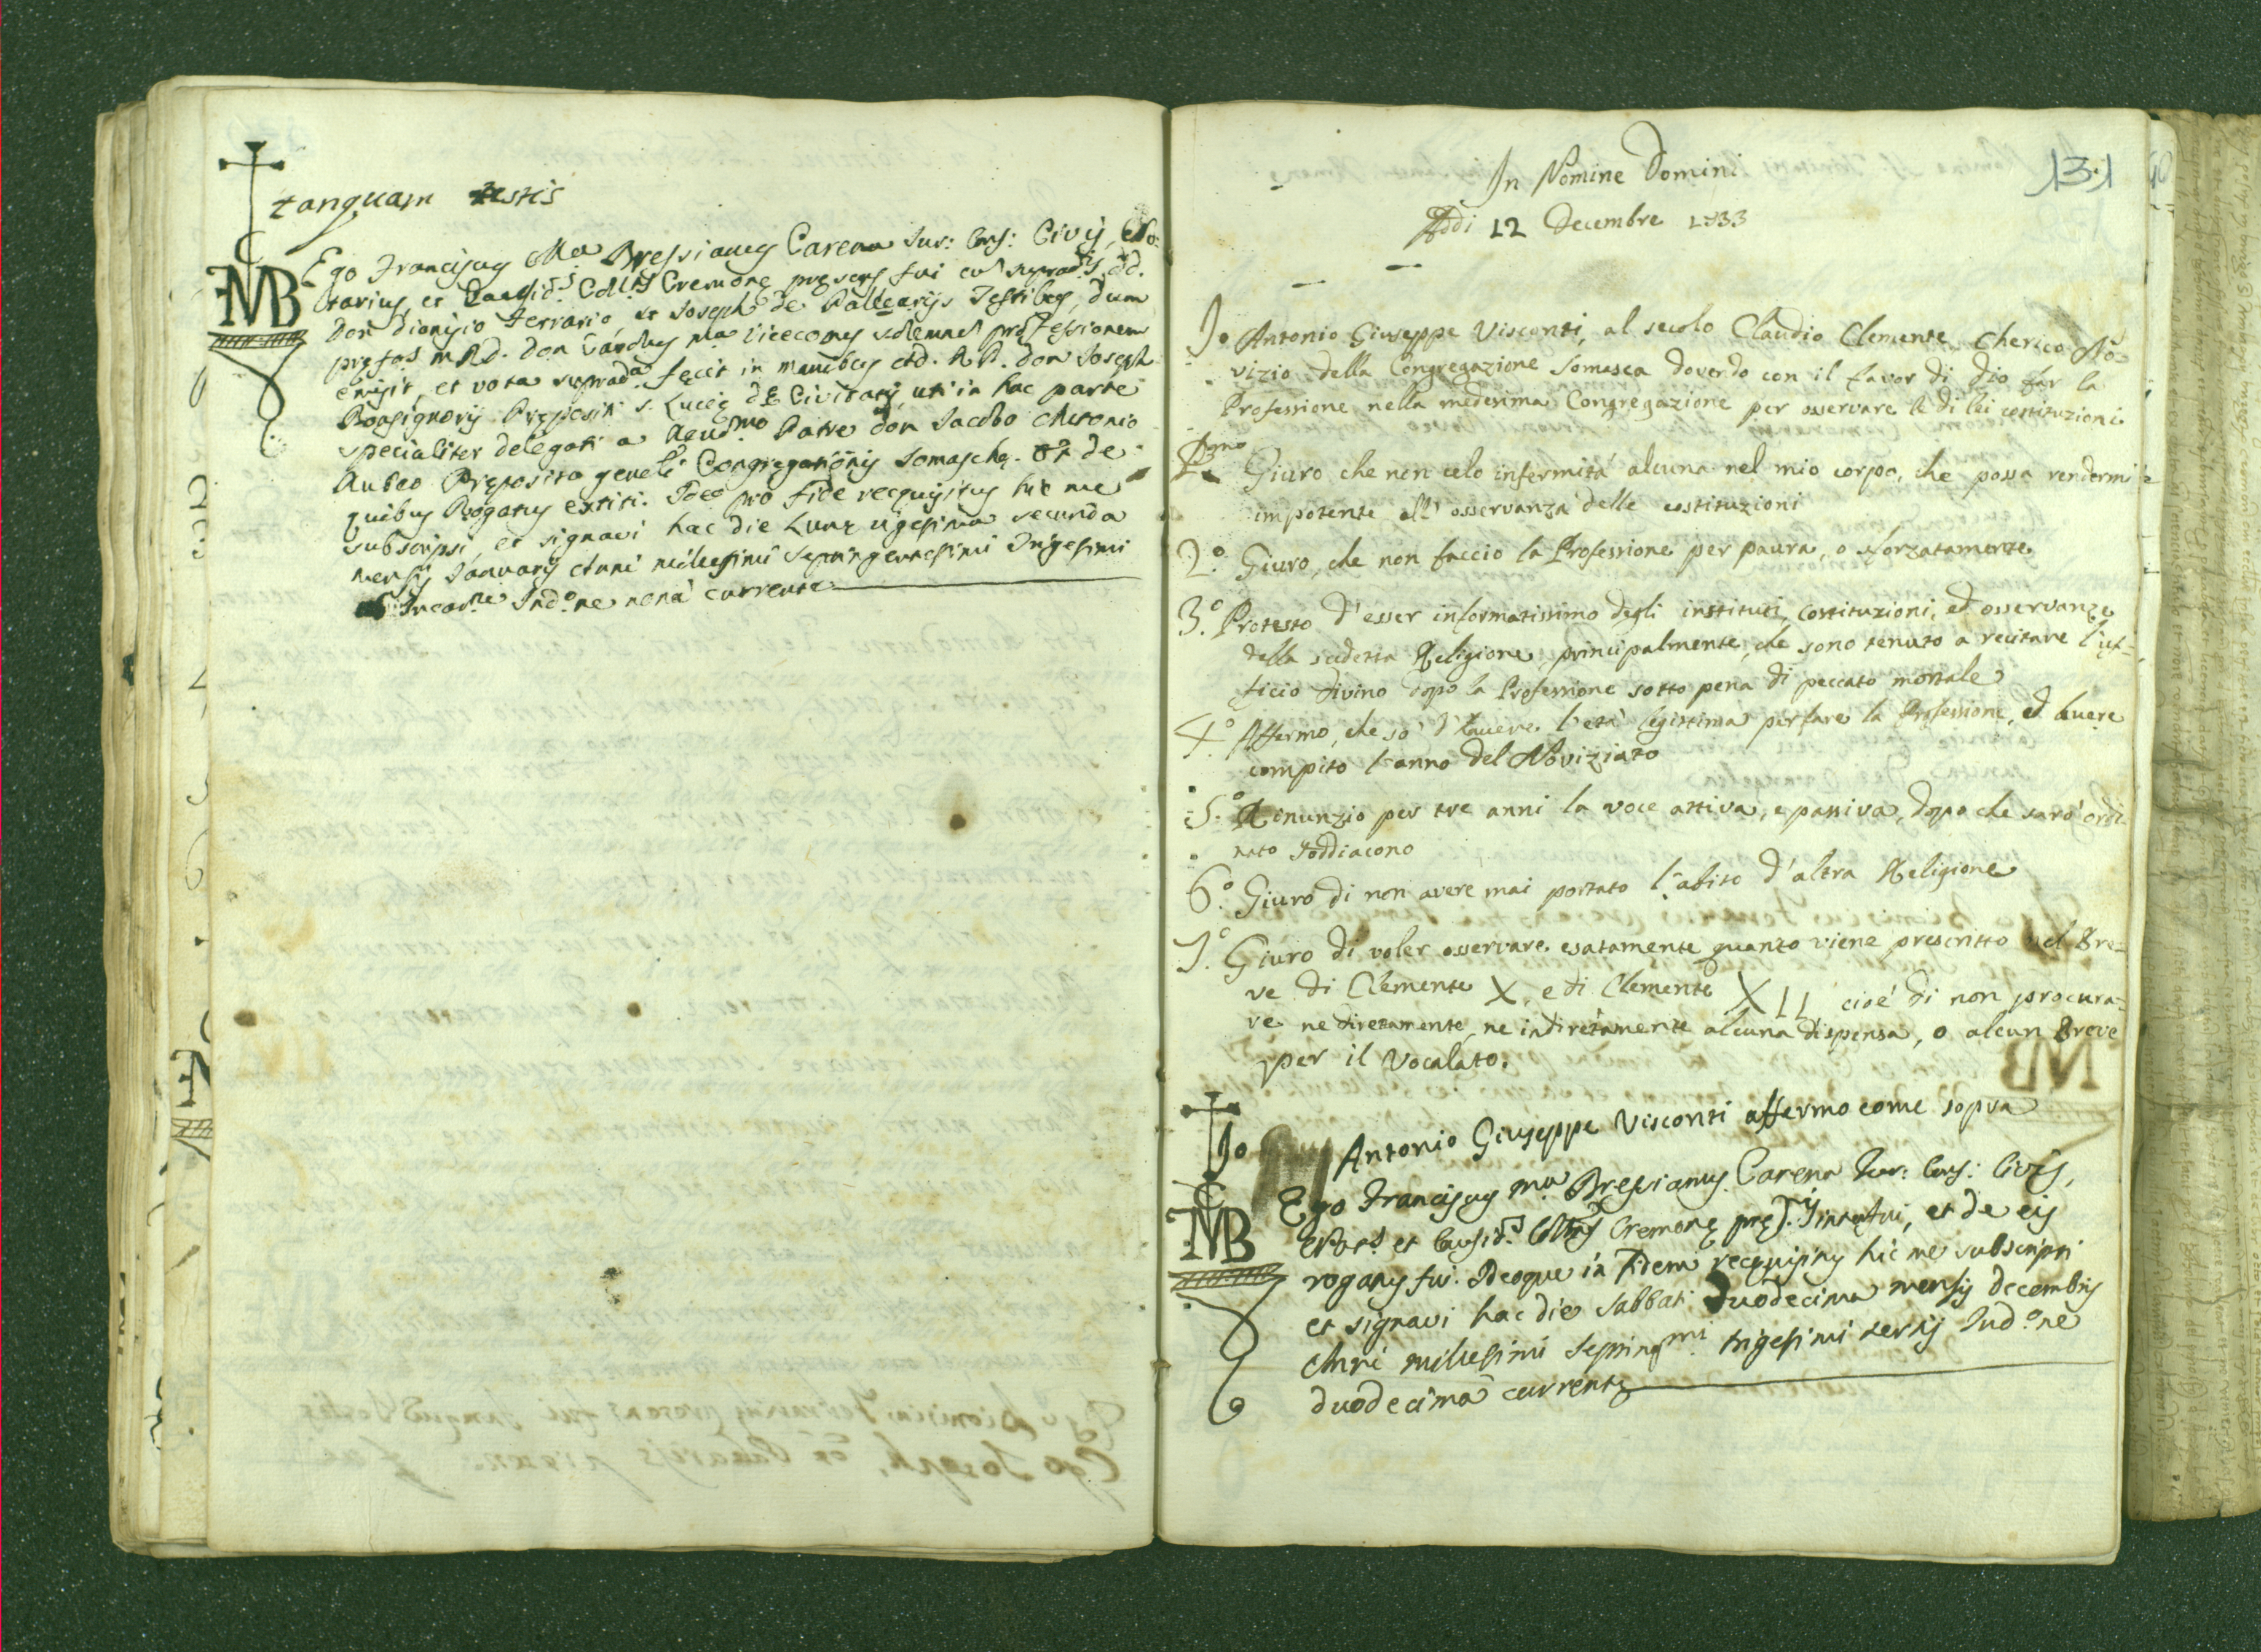 tanquam testis
Ego Franciscus Ma Bressianus Carena Jur: Cons: Civis, No-
tarius, et Causid.s Coll.tus Cremonę pręsens fui cum supradis dd.
Don Dionisio Ferrario, et Joseph de Palearijs Testibus, dum
pręfas m. R.d. Don Ma Vicecomes solemnem professionem
emisit, et vota suprada fecit in manibus Ad. R.P. Don Joseph
Bonsignorij Prępositi S. Lucię de Civitatis, uti in hac parte
specialiter delegati a Reud.mo Patre Don Jacobo Antonio
Rubeo Pręposito genēli Congregationis Somaschę. Et de
quibus Rogatus extiti. Ideo pro fide recquisitus hic me
subscripsi, et signavi hac die Lunę vigesima secunda
mensis Januarij Anni millesimi septingentesimi Trigesimi
ab Incar.ne Ind.ne nona currente
131
In Nomine Domini
Addi 12 Decembre 1733
Io Antonio Giuseppe Visconti, al secolo Claudio Clemente Cherico No-
vizio della Congregazione Somasca dovendo con il favor di Dio far la
Professione nella medesima Congregazione per osservare le di lei costituzioni
P.mo Giuro che non celo infermità alcuna nel mio corpo, che possa rendermi
impotente all' osservanza delle costituzioni
2.o Giuro, che non faccio la Professione per paura, o sforzatamente
3.o Protesto d'esser informatissimo degli instituti, costituzioni, ed osservanze
della sudetta Religione, principalmente, che sono tenuto a recitare l'uf-
ficio divino dopo la Professione sotto pena di peccato mortale
4.o Affermo, che so d'havere l'età legittima per fare la Professione, ed havere
compito l'anno del Noviziato
5.o Rinunzio per tre anni la voce attiva, e passiva, dopo che sarò ordi-
nato Soddiacono
6.o Giuro di non avere mai portato l'abito d'altra Religione
7.o Giuro di voler osservare esatamente quanto viene prescritto nel Bre-
ve di Clemente X, e di Clemente XII cioè di non procura-
re ne diretamente, ne indiretamente alcuna dispensa, o alcun Breve
per il Vocalato.
Io Antonio Giuseppe Visconti affermo come sopra
Ego Franciscus Ma Bressianus Carena Jur: Cons: Civis,
Not.s et Causid.s Coll.tus Cremonę interfui, et de eis
rogatus fui. Ideoque in Fidem recquisitus hic me subscripsi
et signavi hac die Sabbati duodecima mensis decembris
Anni millesimi Septing.mi trigesimi tertij Ind.ne
duodecima currente